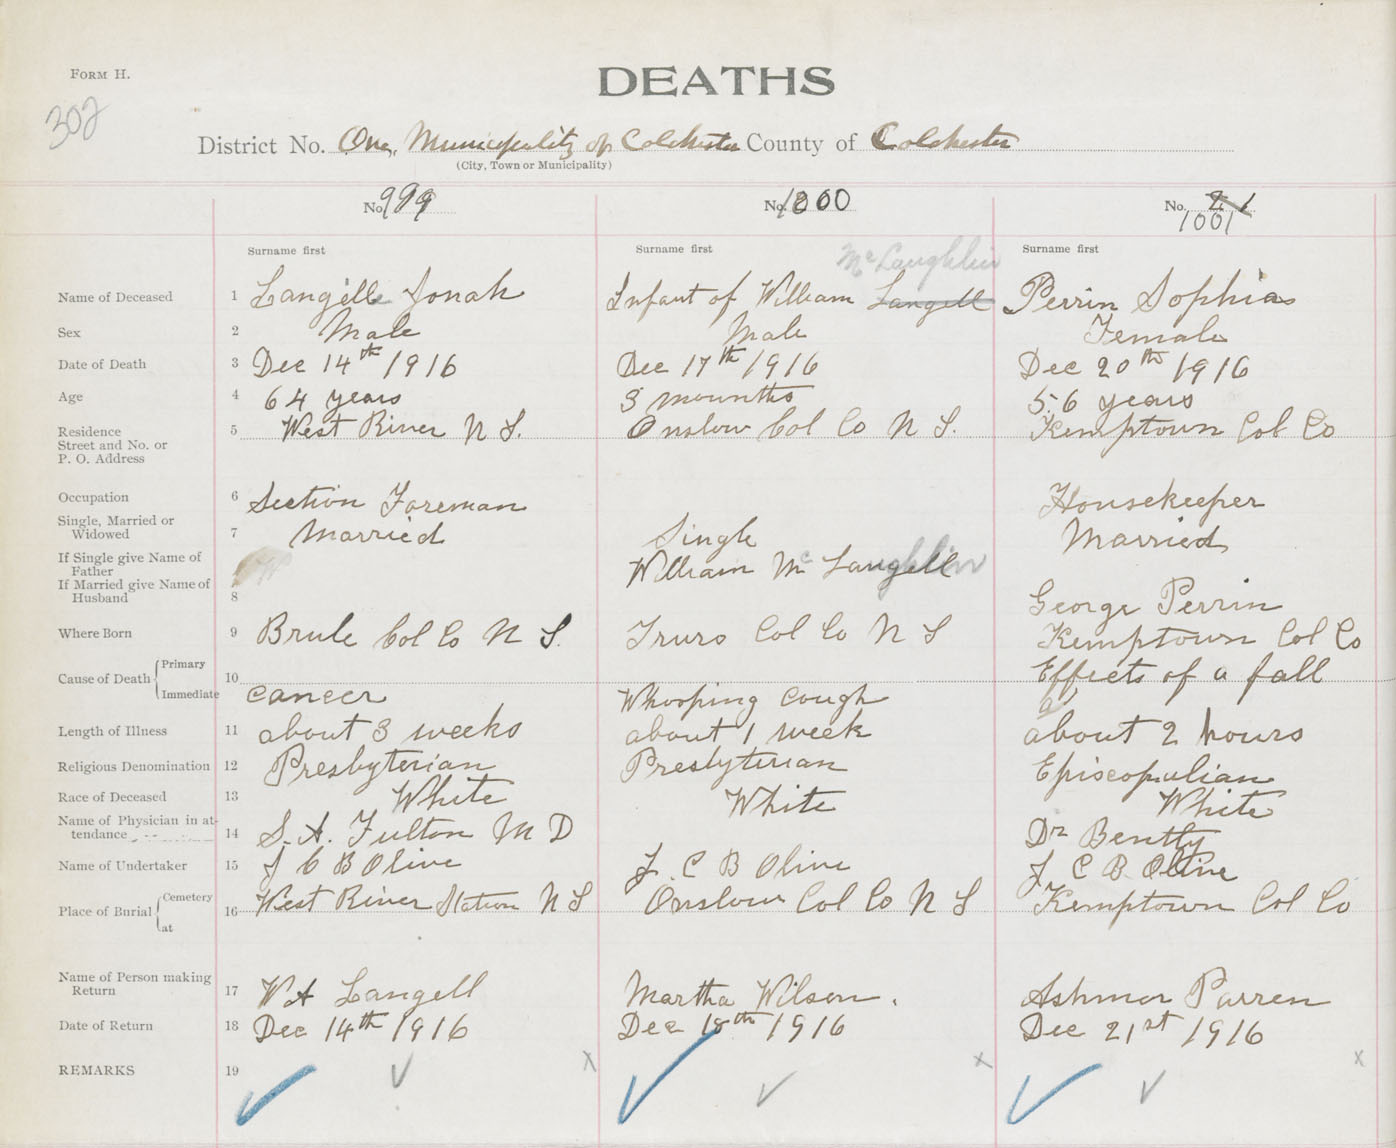 FORM H.
DEATHS
302
District No. One, Municipality of Colchester County of Colchester
(City, Town or Municipality)
No. 999 No. 1000 No. 21
1001
Surname first Surname first Surname first
McLaughlin
Name of Deceased 1 Langille Jonah Infant of William Langell Perrin Sophia
Sex 2 Male Male Female
Date of Death 3 Dec 14th 1916 Dec 17th 1916 Dec 20th 1916
Age 4 64 years 3 mounths 56 years
Residence
Street and No. or
P. O. Address 5 West River N S. Onslow Col Co N S. Kemptown Col Co
Occupation 6 Section Foreman Housekeeper
Single, Married or
Widowed 7 Married Single Married
If Single give Name of
Father William Mc Laughlin
If Married give Name of
Husband 8 George Perrin
Where Born 9 Brule Col Co N S. Truro Col Co N S Kemptown Col Co
Cause of Death Primary 10 Effects of a fall
Immediate cancer Whooping cough
Length of Illness 11 about 3 weeks about 1 week about 2 hours
Religious Denomination 12 Presbyterian Presbyterian Episcopulian
Race of Deceased 13 White White White
Name of Physician in at-
tendance 14 S. A. Fulton M D Dr Bently
Name of Undertaker 15 J C B Olive J. C B Olive J C B Olive
Place of Burial Cemetery
at 16 West River Station N S Onslow Col Co N S Kemptown Col Co
Name of Person making
Return 17 W A Langell Martha Wilson. Ashmor Parren
Date of Return 18 Dec 14th 1916 Dec 18th 1916 Dec 21st 1916
REMARKS 19